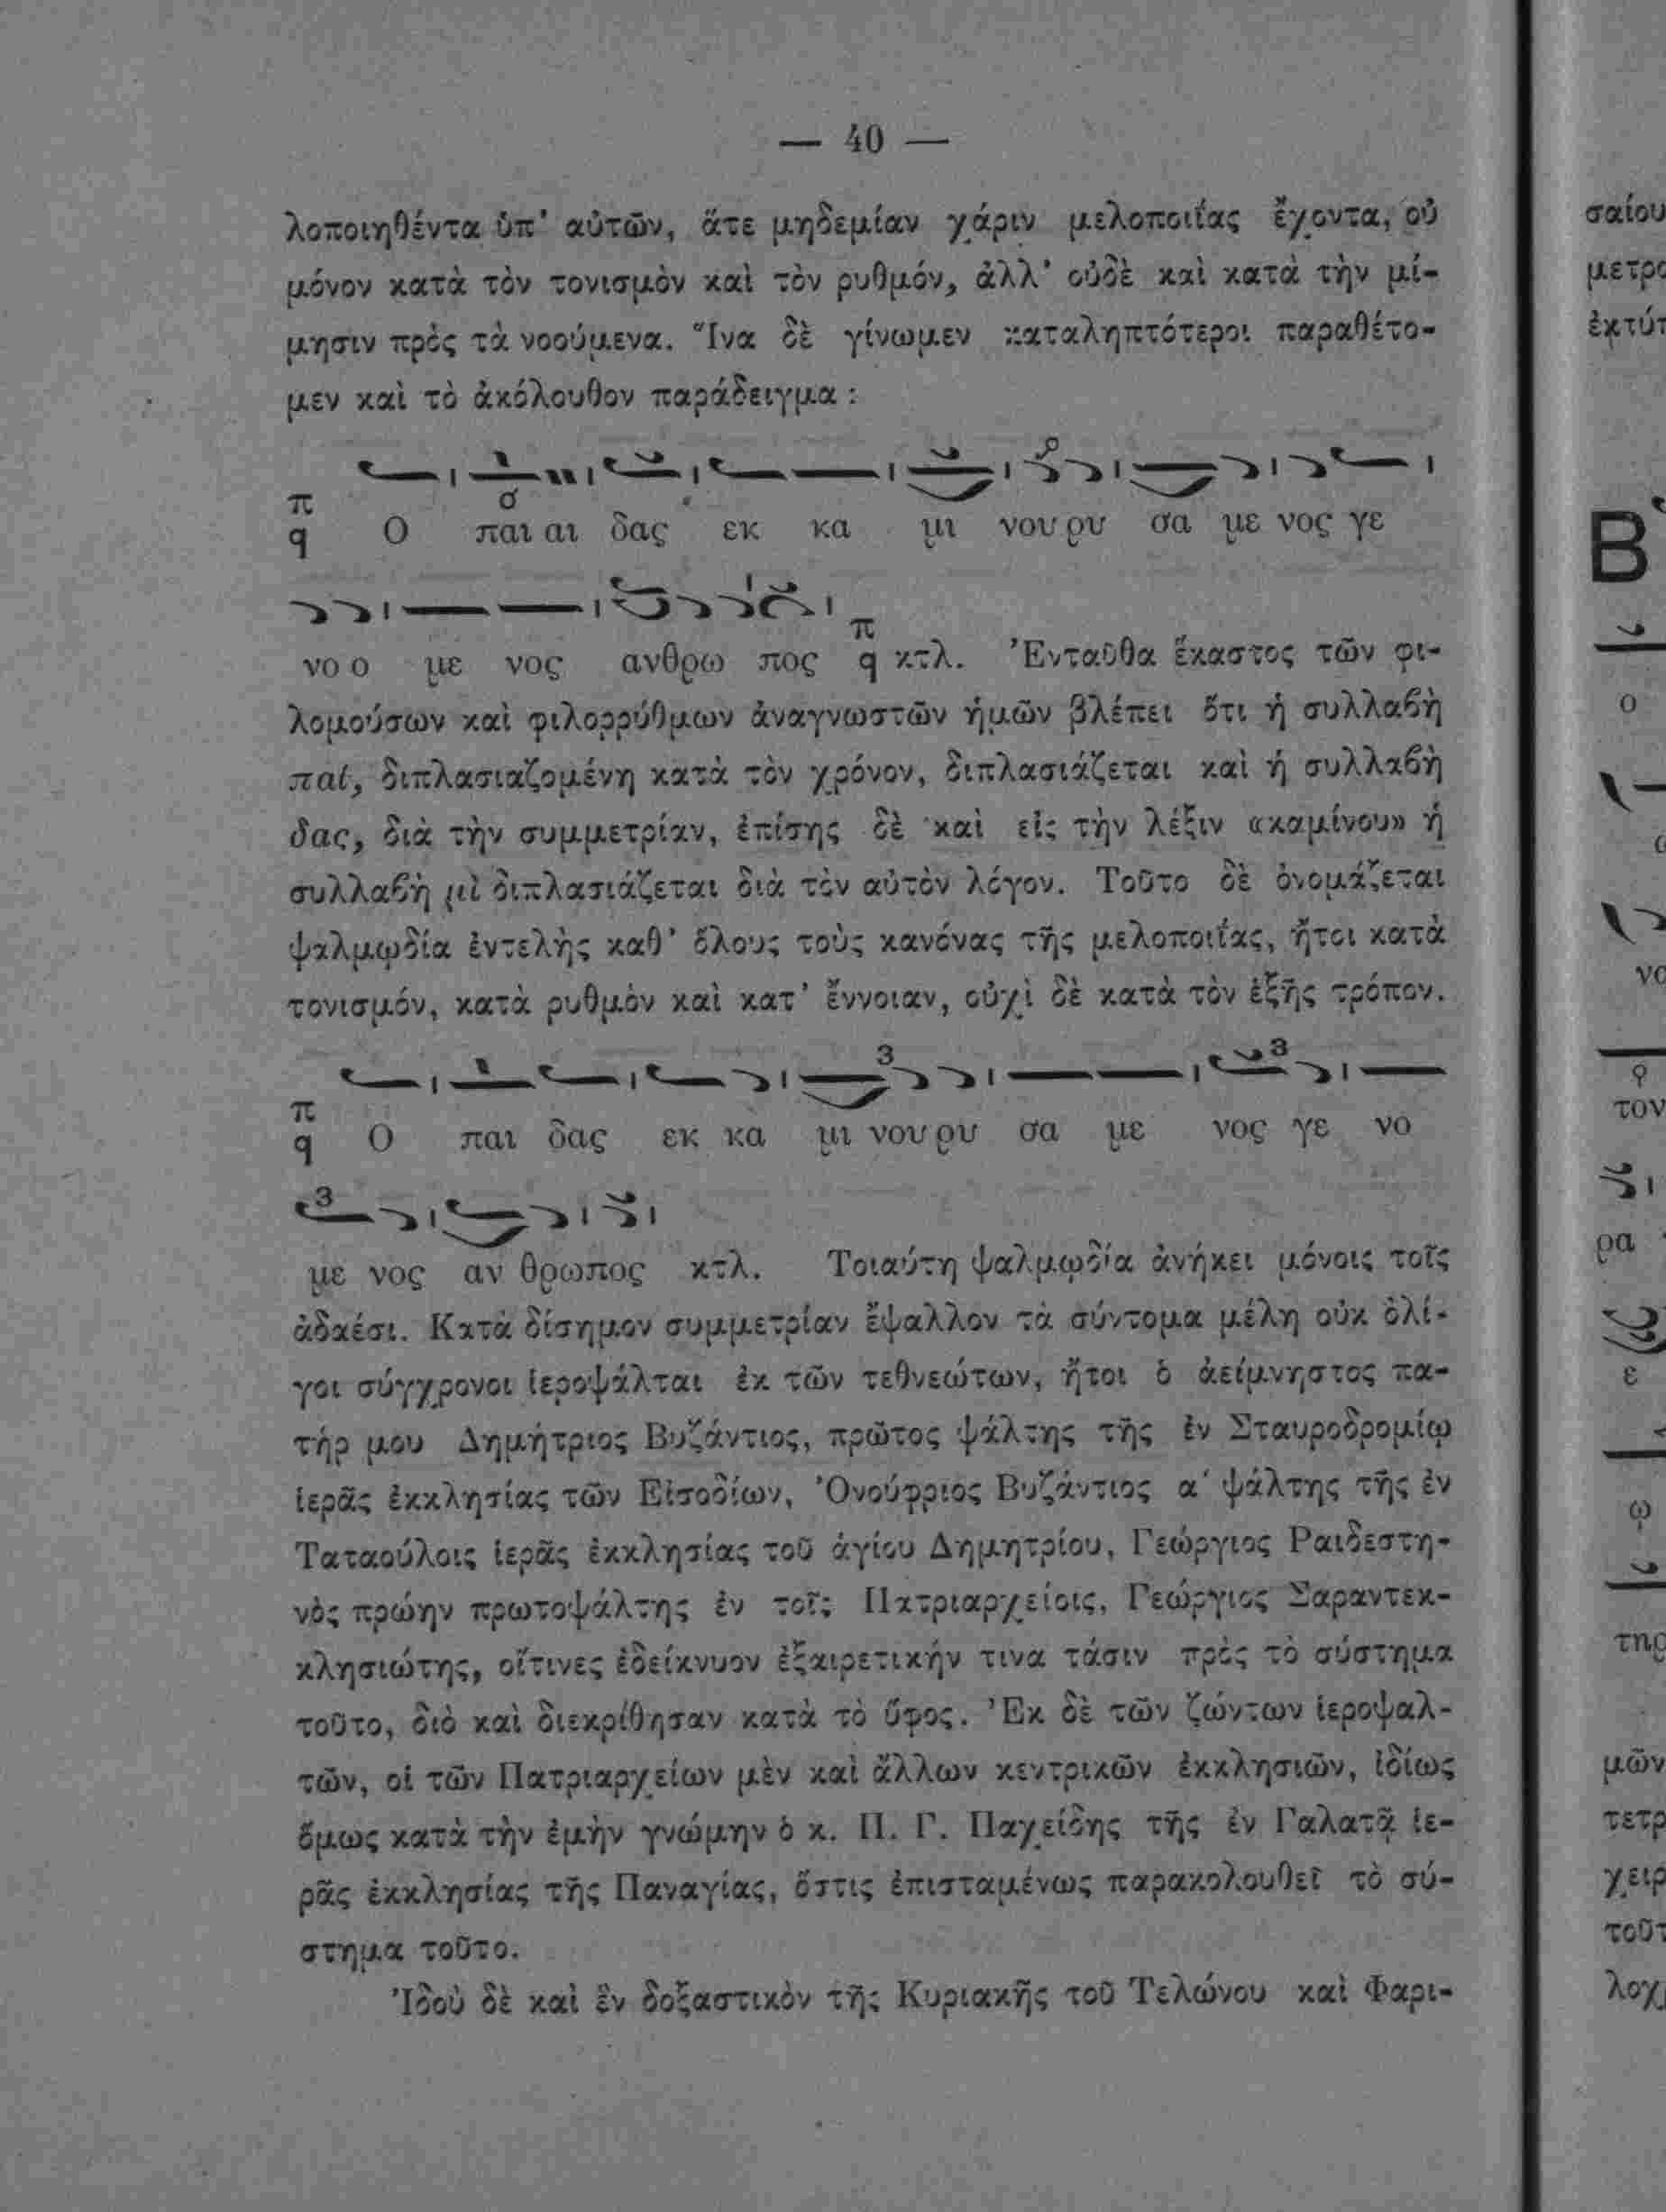 — 40 —
λοποιηθέντα ὑπ' αὐτῶν, ἅτε μηδεμίαν χάριν μελοποιΐας ἔχοντα, οὐ
μόνον κατὰ τὸν τονισμὸν καὶ τὸν ρυθμόν, ἀλλ' οὐδὲ καὶ κατὰ τὴν μί-
μησιν πρὸς τὰ νοούμενα. Ἵνα δὲ γίνωμεν καταληπτότεροι παραθέτο-
μεν καὶ τὸ ἀκόλουθον παράδειγμα :
π
q Ο παι αι δας εκ κα μι νου ρυ σα με νος γε
νο ο με νος ανθρω πος π q κτλ. Ἐνταῦθα ἕκαστος τῶν φι-
λομούσων καὶ φιλορρύθμων ἀναγνωστῶν ἡμῶν βλέπει ὅτι ἡ συλλαβὴ
παί, διπλασιαζομένη κατὰ τὸν χρόνον, διπλασιάζεται καὶ ἡ συλλαβὴ
δας, διὰ τὴν συμμετρίαν, ἐπίσης δὲ καὶ εἰς τὴν λέξιν «καμίνου» ἡ
συλλαβὴ μὶ διπλασιάζεται διὰ τὸν αὐτὸν λόγον. Τοῦτο δὲ ὀνομάζεται
ψαλμῳδία ἐντελὴς καθ' ὅλους τοὺς κανόνας τῆς μελοποιΐας, ἤτοι κατὰ
τονισμόν, κατὰ ρυθμὸν καὶ κατ' ἔννοιαν, οὐχὶ δὲ κατὰ τὸν ἑξῆς τρόπον.
3 3
π
q Ο παι δας εκ κα μι νου ρυ σα με νος γε νο
3
με νος αν θρωπος κτλ. Τοιαύτη ψαλμῳδία ἀνήκει μόνοις τοῖς
ἀδαέσι. Κατὰ δίσημον συμμετρίαν ἔψαλλον τὰ σύντομα μέλη οὐκ ὀλί-
γοι σύγχρονοι ἱεροψάλται ἐκ τῶν τεθνεώτων, ἤτοι ὁ ἀείμνηστος πα-
τήρ μου Δημήτριος Βυζάντιος, πρῶτος ψάλτης τῆς ἐν Σταυροδρομίῳ
ἱερᾶς ἐκκλησίας τῶν Εἰσοδίων, Ὀνούφριος Βυζάντιος α΄ ψάλτης τῆς ἐν
Ταταούλοις ἱερᾶς ἐκκλησίας τοῦ ἁγίου Δημητρίου, Γεώργιος Ραιδεστη-
νὸς πρώην πρωτοψάλτης ἐν τοῖς Πατριαρχείοις, Γεώργιος Σαραντεκ-
κλησιώτης, οἵτινες ἐδείκνυον ἐξαιρετικήν τινα τάσιν πρὸς τὸ σύστημα
τοῦτο, διὸ καὶ διεκρίθησαν κατὰ τὸ ὕφος. Ἐκ δὲ τῶν ζώντων ἱεροψαλ-
τῶν, οἱ τῶν Πατριαρχείων μὲν καὶ ἄλλων κεντρικῶν ἐκκλησιῶν, ἰδίως
ὅμως κατὰ τὴν ἐμὴν γνώμην ὁ κ. Π. Γ. Παχείδης τῆς ἐν Γαλατᾷ ἱε-
ρᾶς ἐκκλησίας τῆς Παναγίας, ὅστις ἐπισταμένως παρακολουθεῖ τὸ σύ-
στημα τοῦτο.
Ἰδοὺ δὲ καὶ ἓν δοξαστικὸν τῆς Κυριακῆς τοῦ Τελώνου καὶ Φαρι-